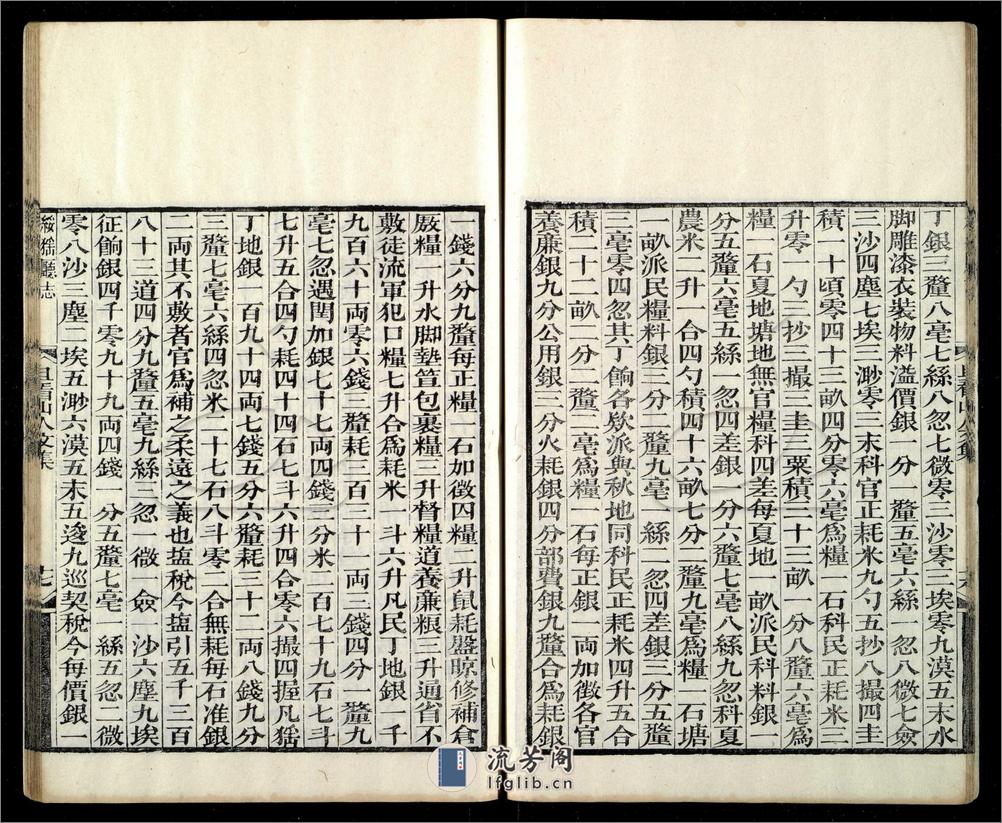 丁銀三釐八毫七絲八忽七微零二沙零二埃零九漠五末水
脚雕漆衣裝物料溢價銀一分一釐五毫六絲一忽八微七僉
三沙四塵七埃三渺零三末科官正耗米九勺五抄八撮四圭
積一十頃零四十三畝四分零六毫爲糧一石科民正耗米三
升零一勺三抄三撮二圭三粟積三十三畝一分八釐六毫爲
糧一石夏地塘地無官糧科四差每夏地一畝派民科料銀一
分五五釐六毫五絲一忽四差銀一分六釐七毫八絲九忽科夏
農米二升一合四勺積四十六畝七分二釐九毫爲糧一石塘
一畝派民糧料銀三分一釐九毫一絲一忽四差銀三分五釐
三毫零四忽其丁餉各欵派與秋地同科民正耗米四升五合
積二十二畝二分二釐二毫爲糧一石每正銀一両加徵各官
養廉銀九分公用銀二分火耗銀四分部費銀九釐合爲耗銀
一錢六分九釐每正糧一石加徵四糧二升鼠耗盤晾修補倉
厫糧一升水脚墊笪包裹糧三升督糧道養廉粮二升通省不
敷徒流軍犯口糧七升合爲耗米一斗六升凡民丁地銀一千
九百六十両零六錢二釐耗三百三十一両三錢四分一釐九
毫七忽遇閏加銀七十七両四錢三分米一百七十九石七斗
七升五合四勺耗四十四石七斗六升四合零六撮四握凡猺
丁地銀一百九十四両七錢五分六釐耗三十二両八錢九分
三釐七毫六絲四忽米二十七石八斗零二合無耗每石准銀
二両其不敷者官爲補之柔遠之義也塩稅今塩引五千三百
八十三道四分九釐五毫九絲二忽一微一僉一沙六塵九埃
征餉銀四千零九十九両四錢一分五釐七毫一絲五忽一微
零八沙三塵二埃五渺六漠五末五逡九巡契稅今每價銀一
綏猺廳志
且看山人文集
流芳阁
lfglib.cn